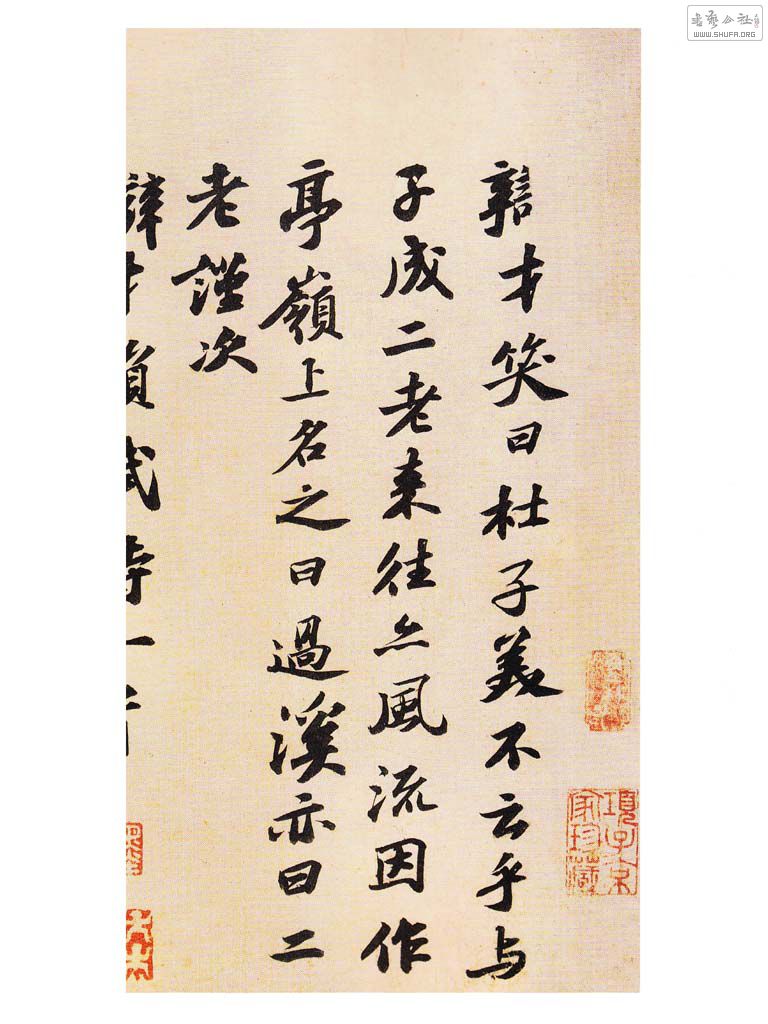 辯才笑曰杜子美不云乎与
子成二老来往亦風流因作
亭嶺上名之曰過溪亦曰二
老謹次
辯才韻賦詩一首
項子京家珍藏
書藝公社
WWW.SHUFA.ORG